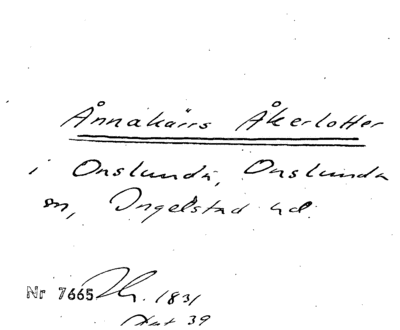 Ånnakärrs Åkerlotter
i Onslunda, Onslunda
sn, Ingelstad hd.
Nr 7665 Th. 1831
Akt 39